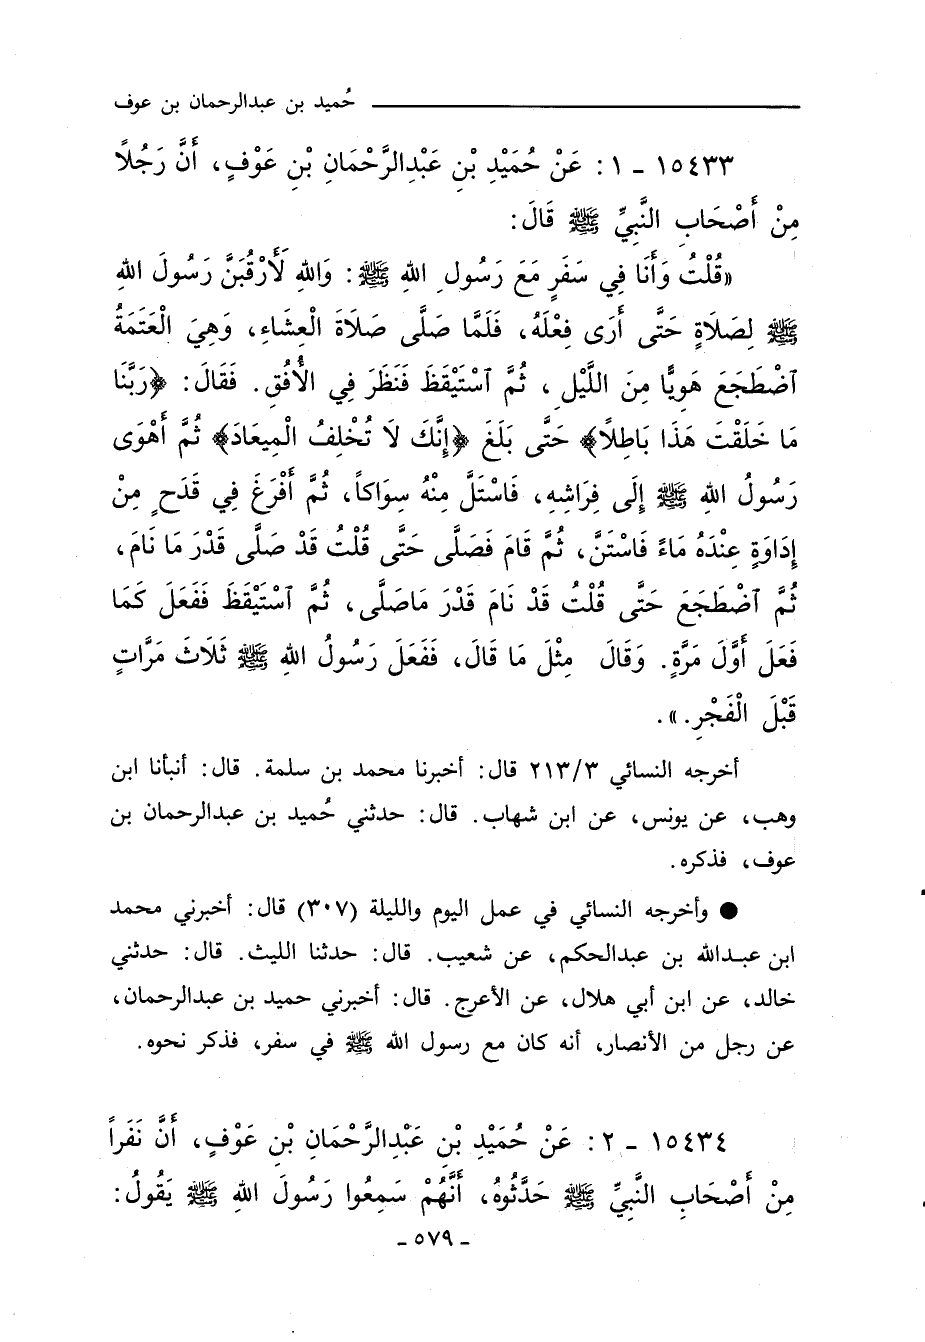 حُميد بن عبدالرحمان بن عوف
١٥٤٣٣ - ١ : عَنْ حُمَيْدِ بْنِ عَبْدِالرَّحْمَانِ بْنِ عَوْفٍ، أَنَّ رَجُلًا
مِنْ أَصْحَابِ النَّبِيِّ ﷺ قَالَ:
«قُلْتُ وَأَنَا فِي سَفَرٍ مَعَ رَسُولِ اللهِ ﷺ: وَاللهِ لَأَرْقُبَنَّ رَسُولَ اللهِ
ﷺ لِصَلَاةٍ حَتَّى أَرَى فِعْلَهُ، فَلَمَّا صَلَّى صَلَاةَ الْعِشَاءِ، وَهِيَ الْعَتَمَةُ
ٱضْطَجَعَ هَوِيًّا مِنَ اللَّيْلِ، ثُمَّ ٱسْتَيْقَظَ فَنَظَرَ فِي الْأُفُقِ. فَقَالَ: ﴿رَبَّنَا
مَا خَلَقْتَ هَذَا بَاطِلًا﴾ حَتَّى بَلَغَ ﴿إِنَّكَ لَا تُخْلِفُ الْمِيعَادَ﴾ ثُمَّ أَهْوَى
رَسُولُ اللهِ ﷺ إِلَى فِرَاشِهِ، فَاسْتَلَّ مِنْهُ سِوَاكاً، ثُمَّ أَفْرَغَ فِي قَدَحٍ مِنْ
إِدَاوَةٍ عِنْدَهُ مَاءً فَاسْتَنَّ، ثُمَّ قَامَ فَصَلَّى حَتَّى قُلْتُ قَدْ صَلَّى قَدْرَ مَا نَامَ،
ثُمَّ ٱضْطَجَعَ حَتَّى قُلْتُ قَدْ نَامَ قَدْرَ مَاصَلَّى، ثُمَّ ٱسْتَيْقَظَ فَفَعَلَ كَمَا
فَعَلَ أَوَّلَ مَرَّةٍ. وَقَالَ مِثْلَ مَا قَالَ، فَفَعَلَ رَسُولُ اللهِ ﷺ ثَلَاثَ مَرَّاتٍ
قَبْلَ الْفَجْرِ.».
أخرجه النسائي ٢١٣/٣ قال: أخبرنا محمد بن سلمة. قال: أنبأنا ابن
وهب، عن يونس، عن ابن شهاب. قال: حدثني حُميد بن عبدالرحمان بن
عوف، فذكره.
● وأخرجه النسائي في عمل اليوم والليلة (٣٠٧) قال: أخبرني محمد
ابن عبدالله بن عبدالحكم، عن شعيب. قال: حدثنا الليث. قال: حدثني
خالد، عن ابن أبي هلال، عن الأعرج. قال: أخبرني حميد بن عبدالرحمان،
عن رجل من الأنصار، أنه كان مع رسول الله ﷺ في سفر، فذكر نحوه.
١٥٤٣٤ - ٢ : عَنْ حُمَيْدِ بْنِ عَبْدِالرَّحْمَانِ بْنِ عَوْفٍ، أَنَّ نَفَراً
مِنْ أَصْحَابِ النَّبِيِّ ﷺ حَدَّثُوهُ، أَنَّهُمْ سَمِعُوا رَسُولَ اللهِ ﷺ يَقُولُ:
- ٥٧٩ -